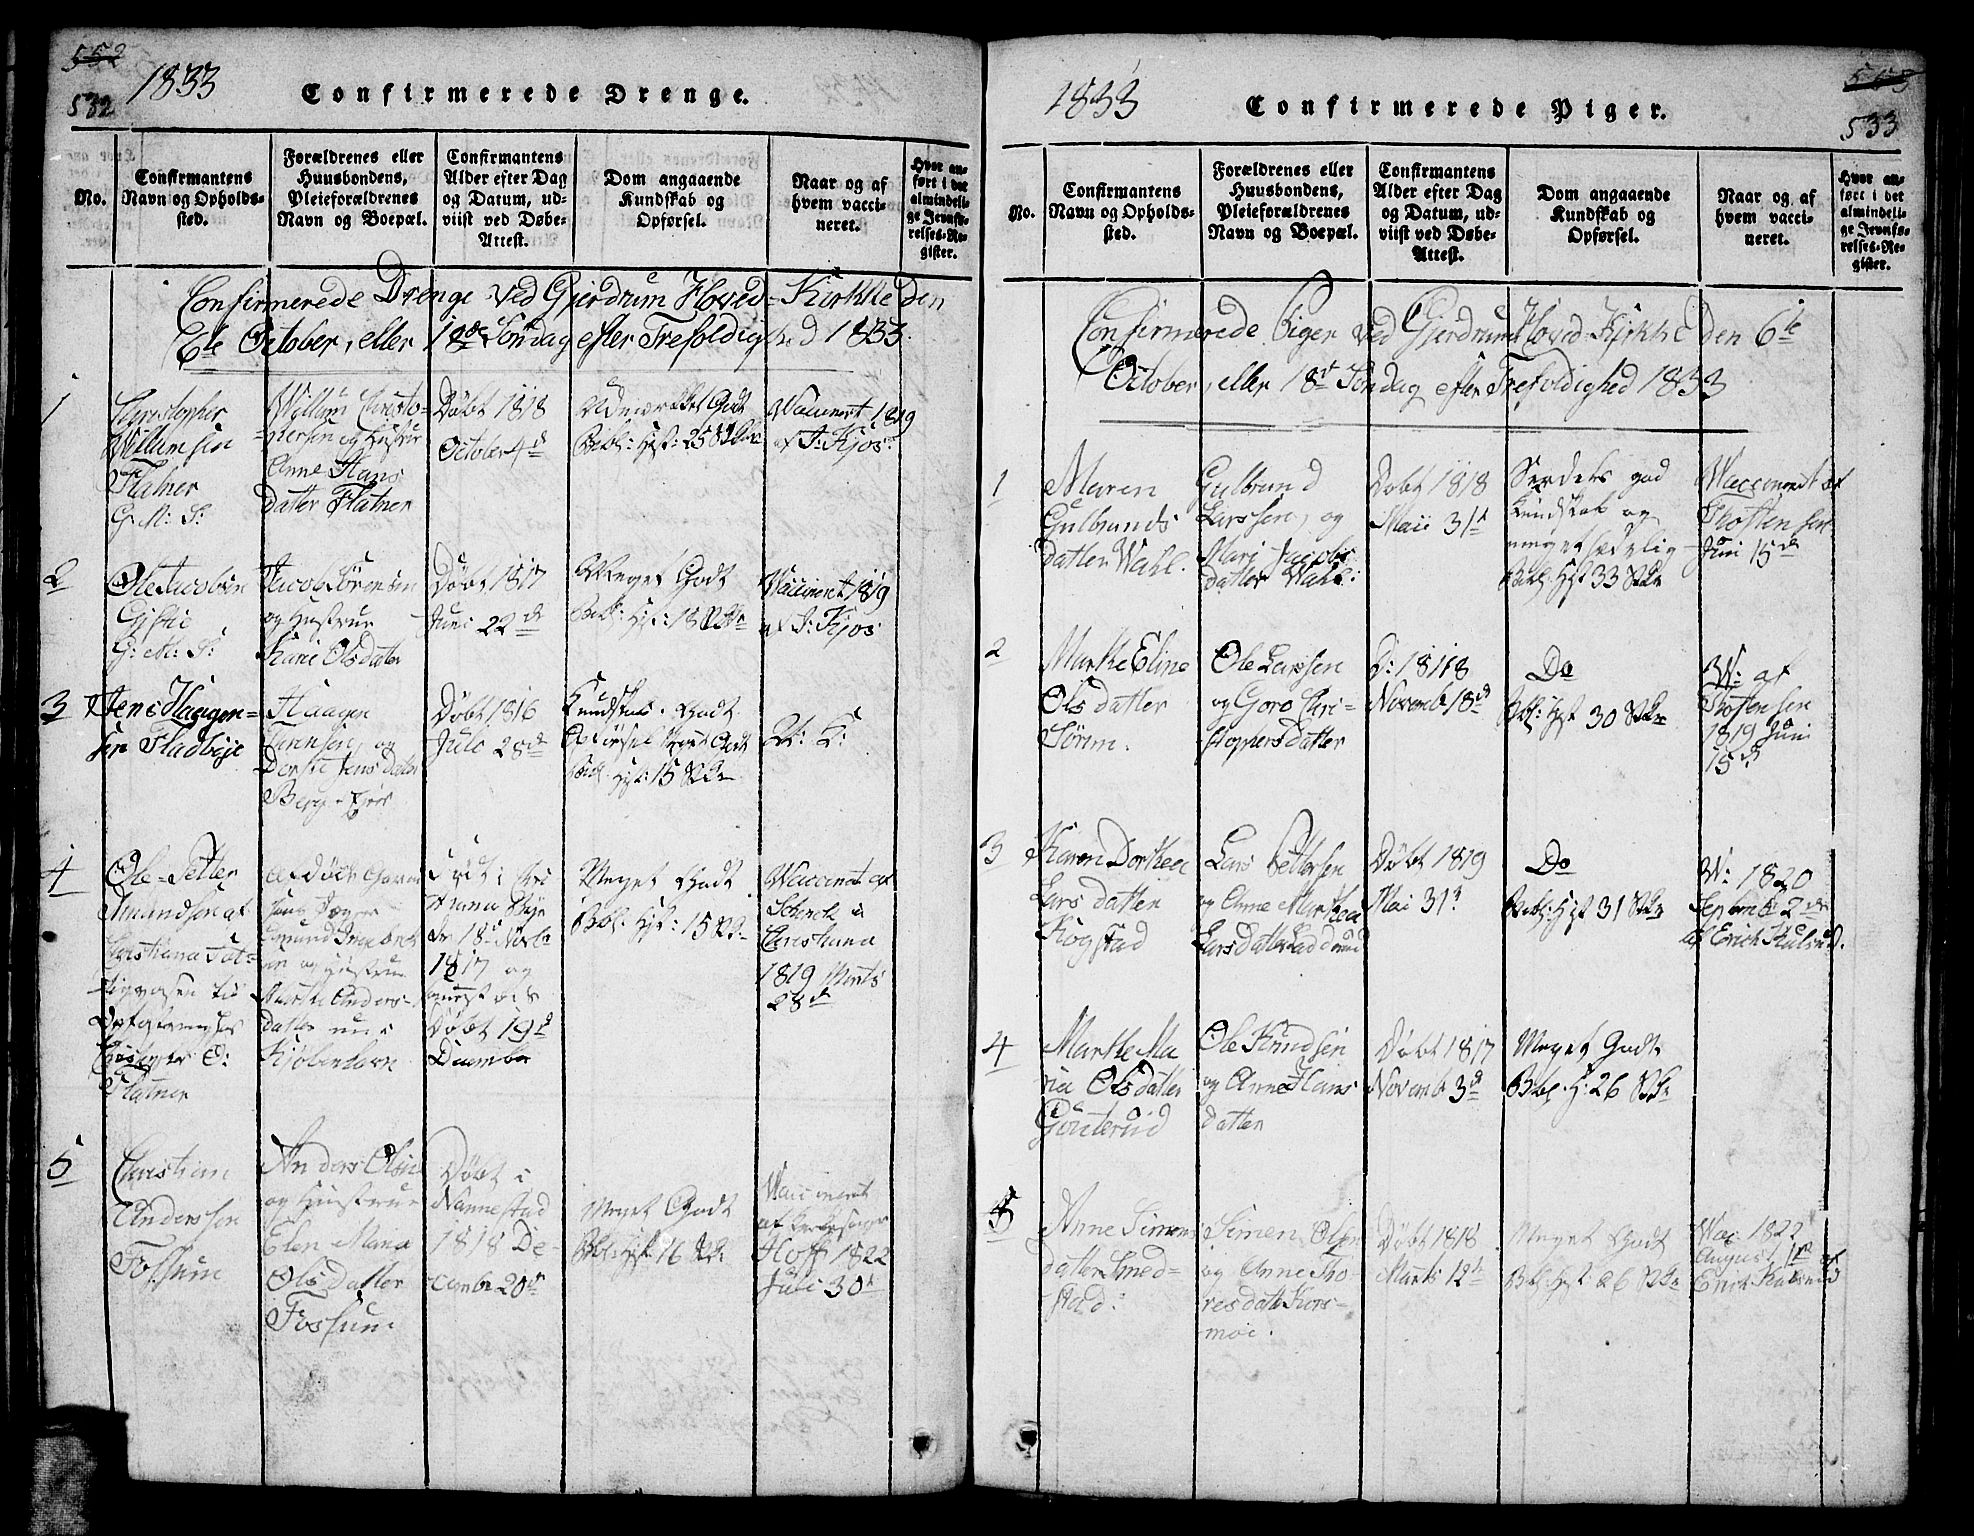 552
532
1833
Confirmerede Drenge.
No.
Confirmantens
Navn og Opholds-
sted.
Forældrenes eller
Huusbondens,
Pleieforældrenes
Navn og Boepæl.
Confirmantens
Alder efter Dag
og Datum, ud-
viist ved Døbe-
Attest.
Dom angaaende
Kundskab og
Opførsel.
Naar og af
hvem vacci-
neret.
Hvor an-
ført i det
almindeli-
ge Jevnfø-
relses-Re-
gister.
Confirmerede Drenge ved Gjerdrum Hoved-Kirkke den
6te October, eller 18de Søndag efter Trefoldighed 1833.
1
Christopher
Willumsen
Flatner
G: M: S:
Willum Christo-
phersen og Hustrue
Anne Hans
datter Flatner
Døbt 1818
October 4d
Udmærkket Godt
Bibl: Hist: 25
Vaccineret 1819
af J: Kjos:
2
Ole Jacobsen
G: M: S:
Jacob Sørensen
og Hustrue
Kari Olsdatter
Døbt 1817
Juni 22de
Meget Godt
Bibl: Hist: 18
Vaccineret 1819
af J: Kjos
3
Jens Haagen-
sen Fladbÿe
Haagen
og
Dorte Jens datter
Berg
Døbt 1816
Juli 28de
Kundskab Godt
Opførsel Godt
Bibl: Hist: 15
V: K:
4
Ole Petter
Amundsen af
Christiana Fat-
tigvæsen til
Christopher O:
Flatner
og Hustrue
Marthe Anders-
datter nu i
Kjøbenhavn
Født i Chri
stjania Bÿe
den 18d Novbr
1817 og
Døbt 19d
December
Meget Godt
Bibl: Hist: 15
Vaccineret af
i
Christiana
1819 Marts
28de
5
Christian
Anderssen
Fossum
Anders Olsen
og Hustrue
Elen Maria
Ols datter
Fossum
Døbt i
Nannestad
1818 De-
cembr 20de
Meget Godt
Bibl: Hist: 16
Vaccineret
af
Hoff 1822
Juli 30te
533
1833
Confirmerede Piger.
No.
Confirmantens
Navn og Opholds-
sted.
Forældrenes eller
Huusbondens,
Pleieforældrenes
Navn og Boepæl.
Confirmantens
Alder efter Dag
og Datum, ud-
viist ved Døbe-
Attest.
Dom angaaende
Kundskab og
Opførsel.
Naar og af
hvem vacci-
neret.
Hvor an-
ført i det
almindeli-
ge Jevnfø-
relses-Re-
gister.
Confirmerede Piger ved Gjerdrum Hoved-Kirkke den 6te
October, eller 18de Søndag efter Trefoldighed 1833
1
Maren
Gulbrands
datter Wahl.
Gulbrand
Larssen, og
Mari Jacobs
datter Wahl:
Døbt 1818
Maii 31d
Særdeles god
Kundskab og
meget sædelig
Bibl: Hist 33
Vaccineret af
Thostensen
Juni 15de
2
Marthe Eline
Ols datter
Sørum.
Ole Larssen
og Goro Chri-
stophersdatter
D: 1818
Novembr 18d
Do
Bibl: Hist 30
V: af
Thostensen
1819 Juni
15d
3
Karen Dorthea
Lars datter
Kogstad
Lars Pettersen
og Anne Marthea
Larsdatter
Døbt 1819
Mai 31t
Do
Bibl: Hist 31
V: 1820
Septembr 2de
af Erich Kulsrud.
4
Marthe Ma
ria Olsdatter
Gouterud
Ole Knudsen
og Anne Hans
datter
Døbt 1817
Novembr 3d
Meget Godt
Bibl: H: 26
5
Anne Simens
datter Smed-
stad:
Simen Olsen
og Anne Tho-
resdatter Kors-
moe.
Døbt 1818
Marts 12te
Meget Godt
Bibl: Hist: 26
Vac: 1822
August 11te af
Erick Kulsrud